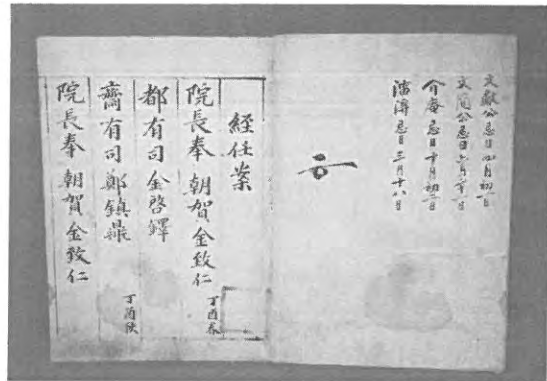 文獻公忌日四月初日
文簡公忌日六月日
介庵忌日十月初日
忌日三月十八日
經任案
院長奉 朝賀金致仁 丁酉春
都有司金啓鐸
齋有司鄭鎮鼎
院長奉 朝賀金致仁 丁酉秋